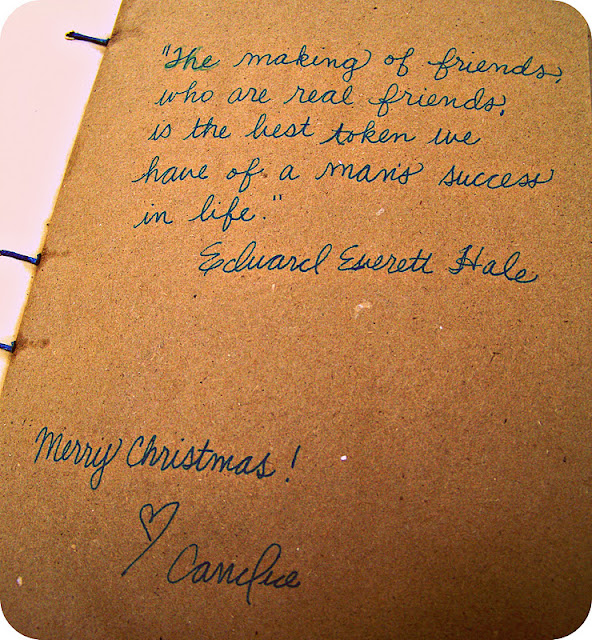 "The making of friends,
who are real friends,
is the best token we
have of a man's success
in life."
Edward Everett Hale
Merry Christmas!
Candice